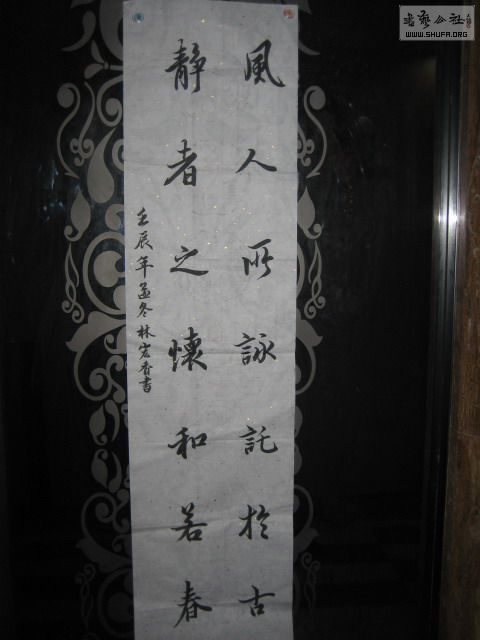 風人所詠託於古
静者之懷和若春
壬辰年孟冬林宏香書
書藝公社
WWW.SHUFA.ORG